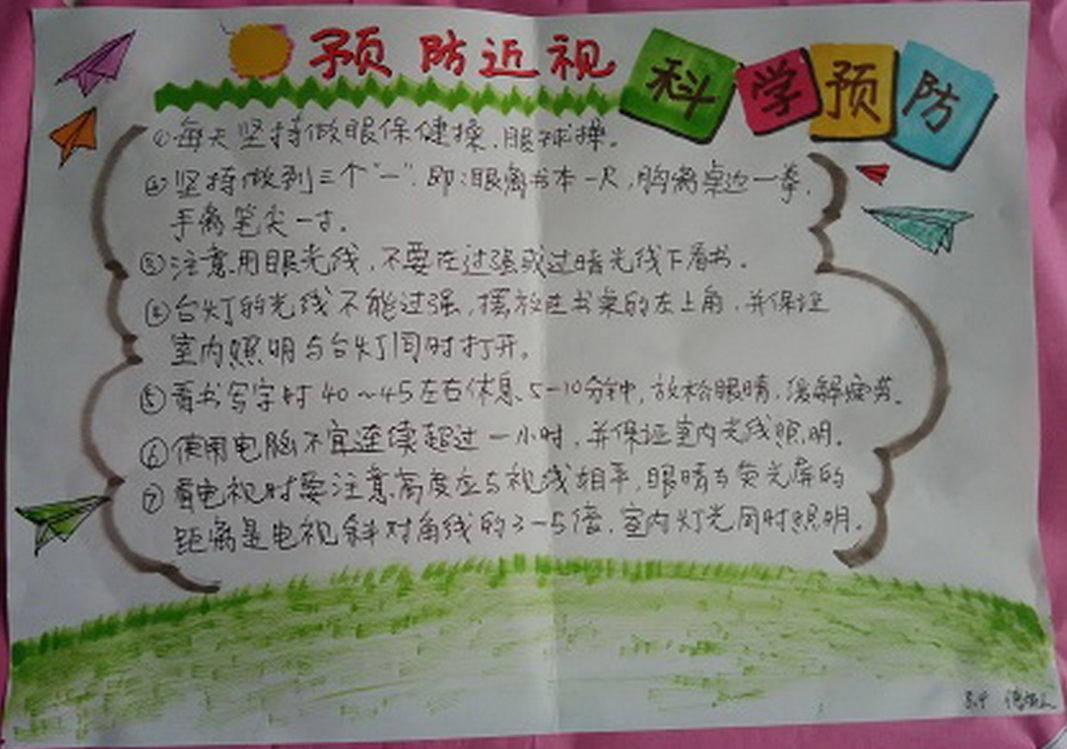 预防近视 科学预防
①每天坚持做眼保健操、眼球操。
②坚持做到三个"一",即:眼离书本一尺,胸离桌边一拳,
手离笔尖一寸。
③注意用眼光线,不要在过强或过暗光线下看书。
④台灯的光线不能过强,摆放在书桌的左上角,并保证
室内照明与台灯同时打开。
⑤看书写字时40~45左右休息、5-10分钟,放松眼睛,缓解疲劳。
⑥使用电脑不宜连续超过一小时,并保证室内光线照明。
⑦看电视时要注意高度应与视线相平,眼睛与荧光屏的
距离是电视斜对角线的3-5倍,室内灯光同时照明。